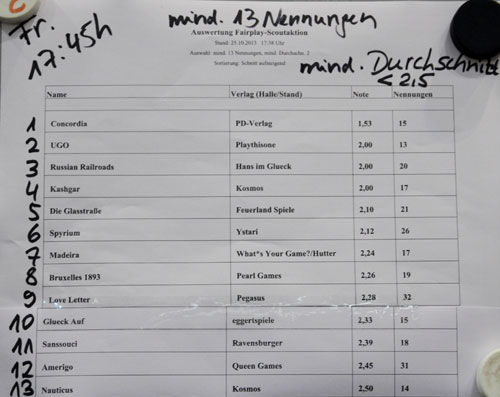 C
Fr.
17:45h
mind. 13 Nennungen
Auswertung Fairplay-Scoutaktion
Stand: 25.10.2013 17:38 Uhr
Auswahl: mind. 13 Nennungen, mind. Durchschn. 2
Sortierung: Schnitt aufsteigend
mind. Durchschnitt
< 2,5
Name Verlag (Halle/Stand) Note Nennungen
1 Concordia PD-Verlag 1,53 15
2 UGO Playthisone 2,00 13
3 Russian Railroads Hans im Glueck 2,00 20
4 Kashgar Kosmos 2,00 17
5 Die Glasstraße Feuerland Spiele 2,10 21
6 Spyrium Ystari 2,12 26
7 Madeira What*s Your Game?/Hutter 2,24 17
8 Bruxelles 1893 Pearl Games 2,26 19
9 Love Letter Pegasus 2,28 32
10 Glueck Auf eggertspiele 2,33 15
11 Sanssouci Ravensburger 2,39 18
12 Amerigo Queen Games 2,45 31
13 Nauticus Kosmos 2,50 14